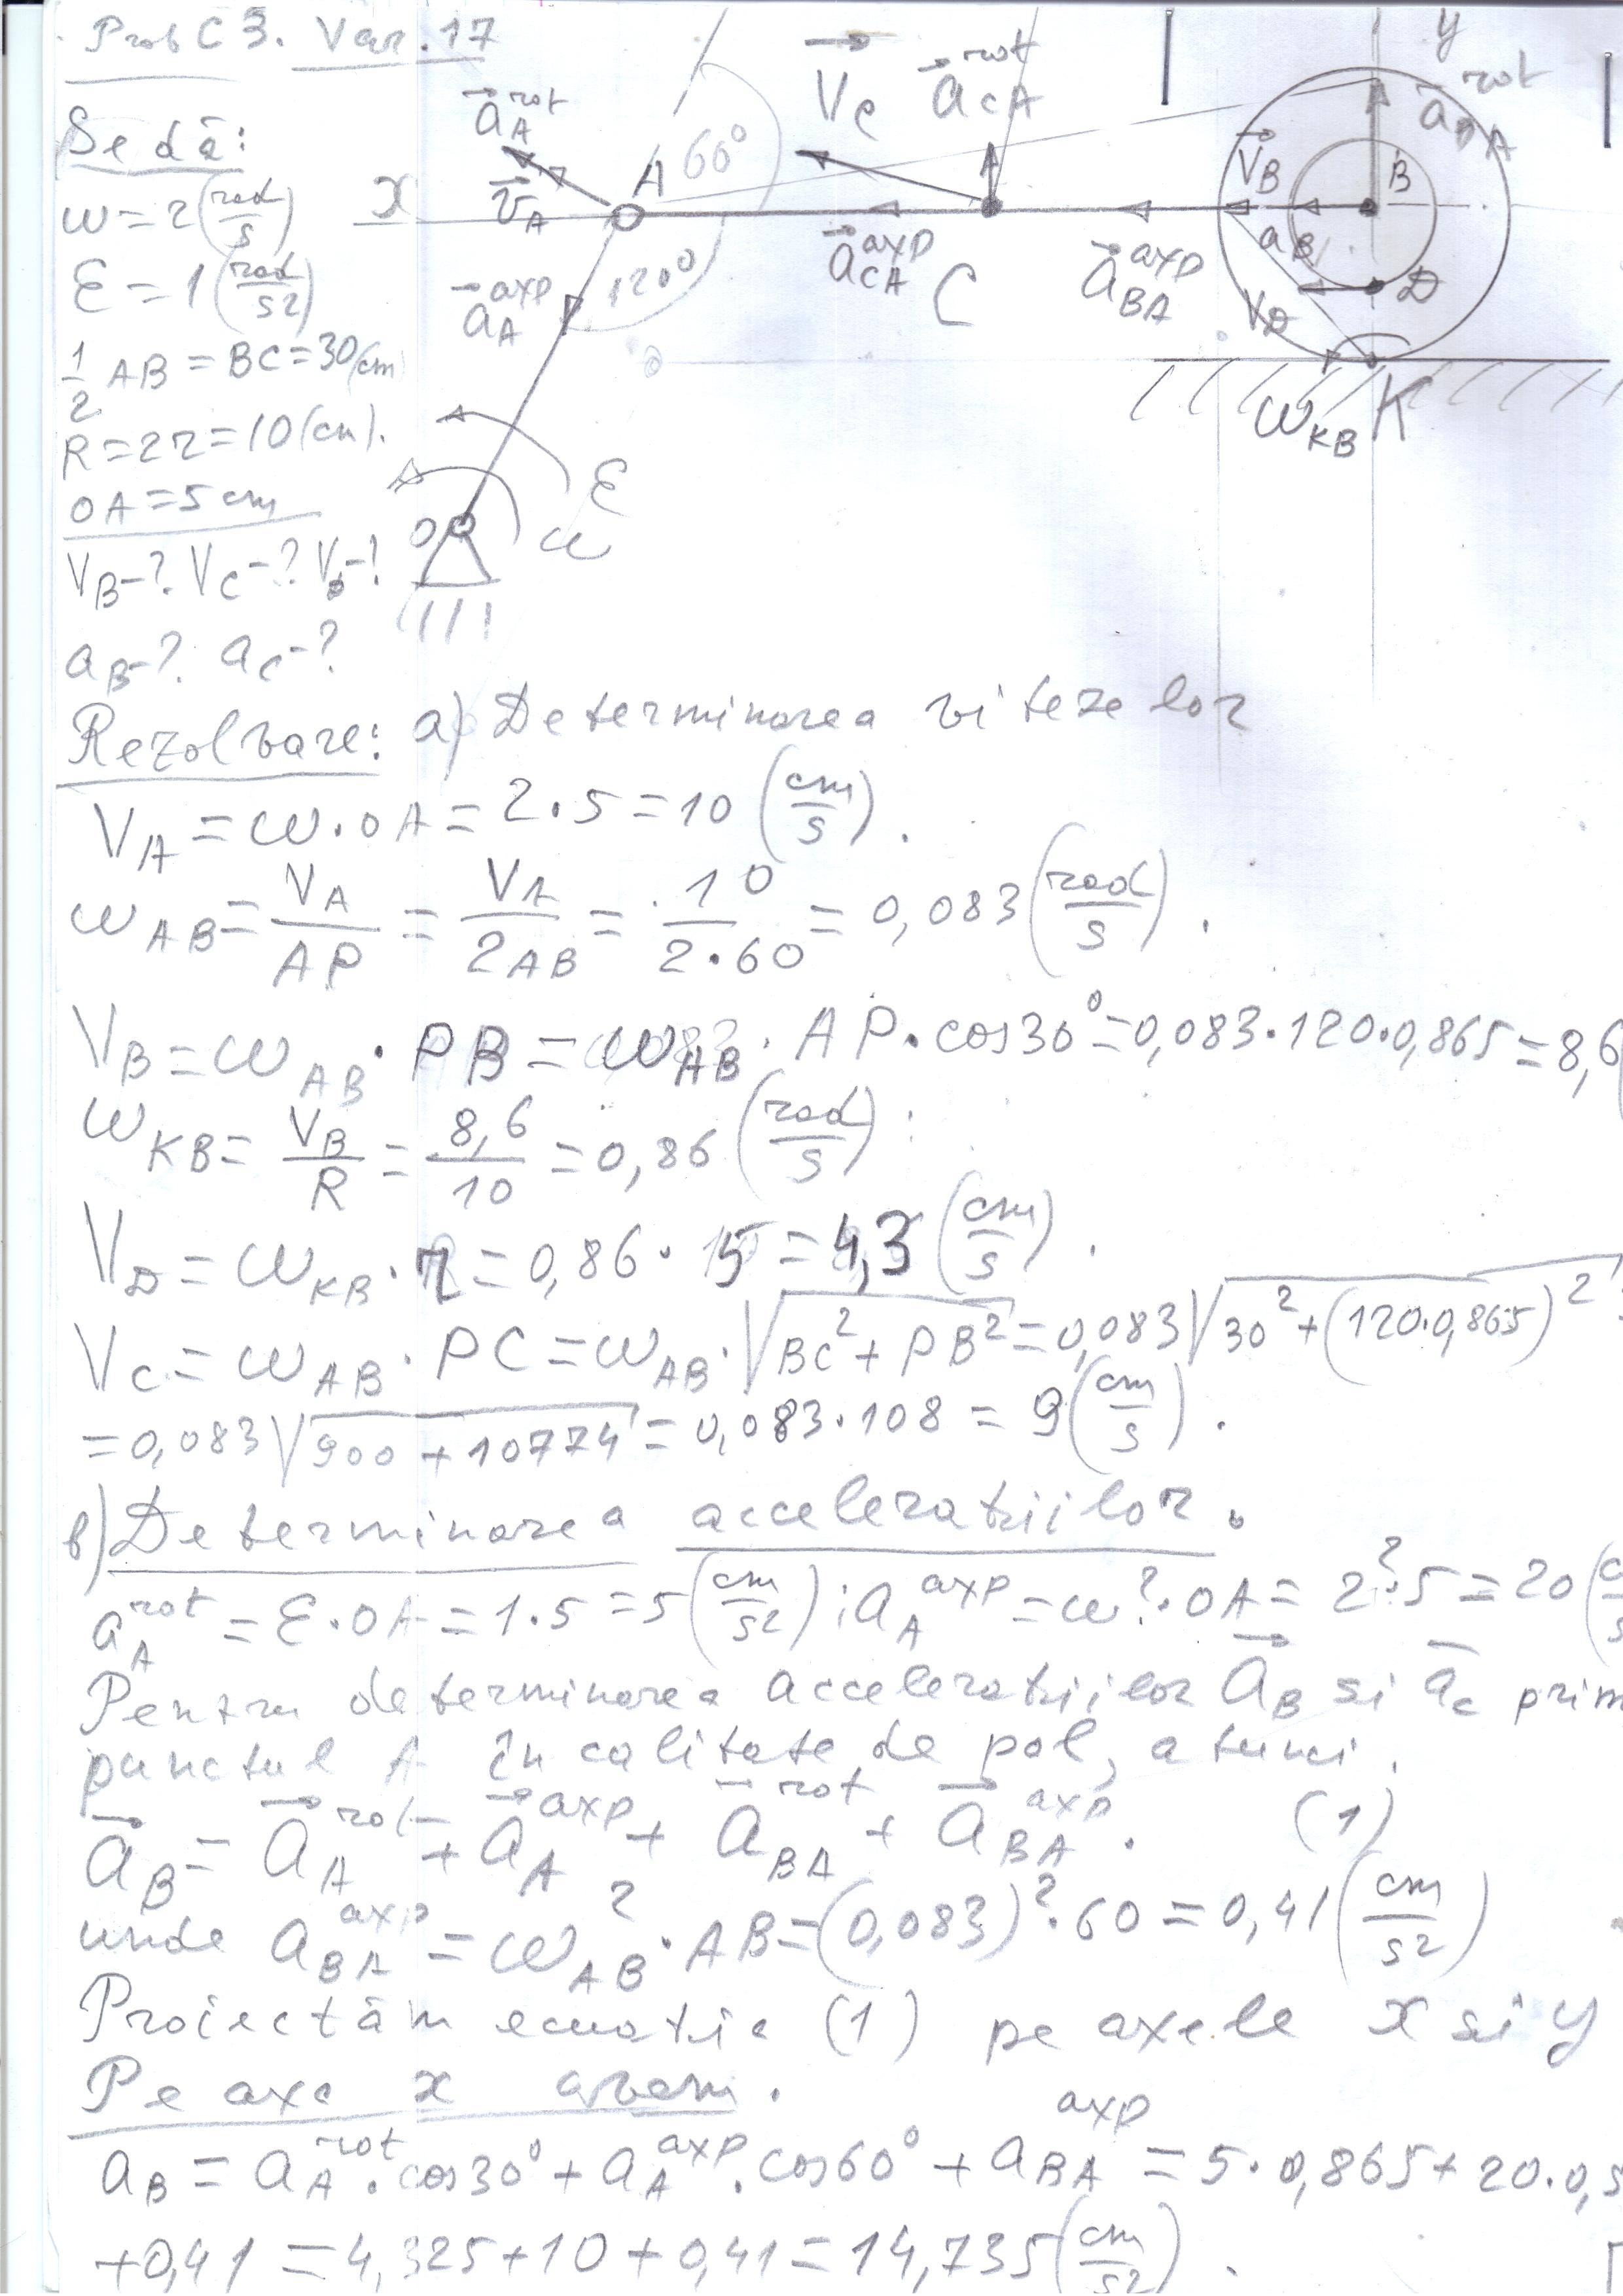 Prob C 3. Var. 17
Se dă:
ω = 2 (rad/s)
ε = 1 (rad/s2)
1/2 AB = BC = 30 (cm
R = 2r = 10 (cm).
OA = 5 cm
VB-? VC-? VD-!
aB-? aC-?
aA rot
VA
x
A
60°
120°
aA axp
VC
aCA rot
aCA axp
C
aBA axp
y
aBA rot
VB
B
aB
VD
D
ωKB
K
O
ε
ω
Rezolvare: a) Determinarea vitezelor
VA = ω·OA = 2·5 = 10 (cm/s).
ωAB = VA/AP = VA/2AB = 10/2·60 = 0,083 (rad/s).
VB = ωAB · PB = ωAB · AP·cos30° = 0,083·120·0,865 = 8,6
ωKB = VB/R = 8,6/10 = 0,86 (rad/s).
VD = ωKB · r = 0,86 · 5 = 4,3 (cm/s).
VC = ωAB · PC = ωAB · √BC²+PB² = 0,083√30²+(120·0,865)²
= 0,083√900+10774 = 0,083·108 = 9 (cm/s).
b) Determinarea acceleratiilor.
aA rot = ε·OA = 1·5 = 5 (cm/s2); aA axp = ω²·OA = 2²·5 = 20
Pentru determinarea acceleratiilor aB si aC prim
punctul A în calitate de pol, atunci.
aB = aA rot + aA axp + aBA rot + aBA axp. (1)
unde aBA axp = ωAB²·AB = (0,083)²·60 = 0,41 (cm/s2)
Proiectăm ecuatia (1) pe axele x si y
Pe axa x avem.
aB = aA rot·cos30° + aA axp·cos60° + aBA axp = 5·0,865+20·0,5
+0,41 = 4,325+10+0,41 = 14,735 (cm/s2).